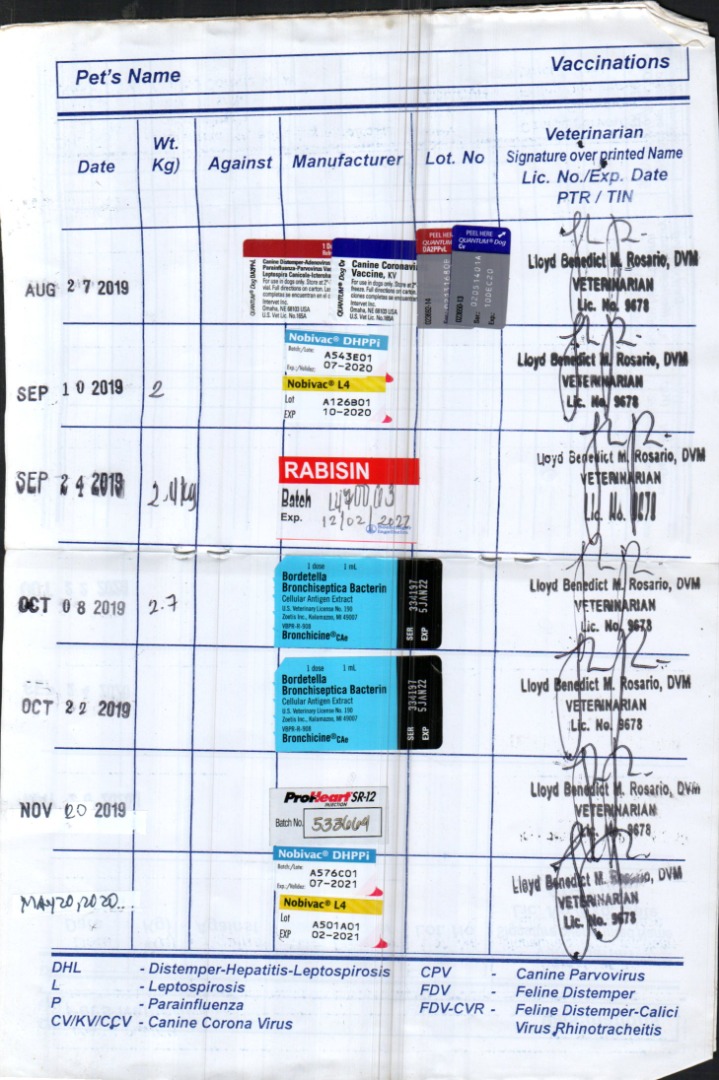 Pet's Name Vaccinations
Date Wt. Kg) Against Manufacturer Lot. No Veterinarian
Signature over printed Name
Lic. No./Exp. Date
PTR / TIN
AUG 27 2019
1 Do
Canine Distemper-Adenovirus
Parainfluenza-Parvovirus Vac
Leptospira Canicola-Icterohae
For use in dogs only. Store at 2°
Intervet Inc.
Omaha, NE 68103 USA
U.S. Vet Lic. No. 165A
QUANTUM® Dog DA2PPvL
QUANTUM® Dog Cv
Canine Coronavi
Vaccine, KV
For use in dogs only. Store at 2°
Intervet Inc.
Omaha, NE 68103 USA
U.S. Vet Lic. No. 165A
PEEL HERE
QUANTUM®
DA2PPvL
PEEL HERE
QUANTUM® Dog
Cv
02051401A
10DEC20
Lloyd Benedict M. Rosario, DVM
VETERINARIAN
Lic. No. 9678
SEP 10 2019 2
Nobivac® DHPPi
A543E01
07-2020
Nobivac® L4
Lot A126B01
EXP 10-2020
Lloyd Benedict M. Rosario, DVM
VETERINARIAN
Lic. No. 9678
SEP 24 2019 2.4kg
RABISIN
Batch
Exp. 12/02/2022
Lloyd Benedict M. Rosario, DVM
VETERINARIAN
Lic. No. 9678
OCT 08 2019 2.7
1 dose 1 mL
Bordetella
Bronchiseptica Bacterin
Cellular Antigen Extract
U.S. Veterinary License No. 190
Zoetis Inc., Kalamazoo, MI 49007
VBPR-R-908
Bronchicine®CAe
SER 334197
EXP 5JAN22
Lloyd Benedict M. Rosario, DVM
VETERINARIAN
Lic. No. 9678
OCT 22 2019
1 dose 1 mL
Bordetella
Bronchiseptica Bacterin
Cellular Antigen Extract
U.S. Veterinary License No. 190
Zoetis Inc., Kalamazoo, MI 49007
VBPR-R-908
Bronchicine®CAe
SER 334197
EXP 5JAN22
Lloyd Benedict M. Rosario, DVM
VETERINARIAN
Lic. No. 9678
NOV 20 2019
ProHeart® SR-12
INJECTION
Batch No. 533669
Lloyd Benedict M. Rosario, DVM
VETERINARIAN
Lic. No. 9678
MAY 20, 2020
Nobivac® DHPPi
A576C01
07-2021
Nobivac® L4
Lot A501A01
EXP 02-2021
Lloyd Benedict M. Rosario, DVM
VETERINARIAN
Lic. No. 9678
DHL - Distemper-Hepatitis-Leptospirosis
L - Leptospirosis
P - Parainfluenza
CV/KV/CCV - Canine Corona Virus
CPV - Canine Parvovirus
FDV - Feline Distemper
FDV-CVR - Feline Distemper-Calici
Virus,Rhinotracheitis